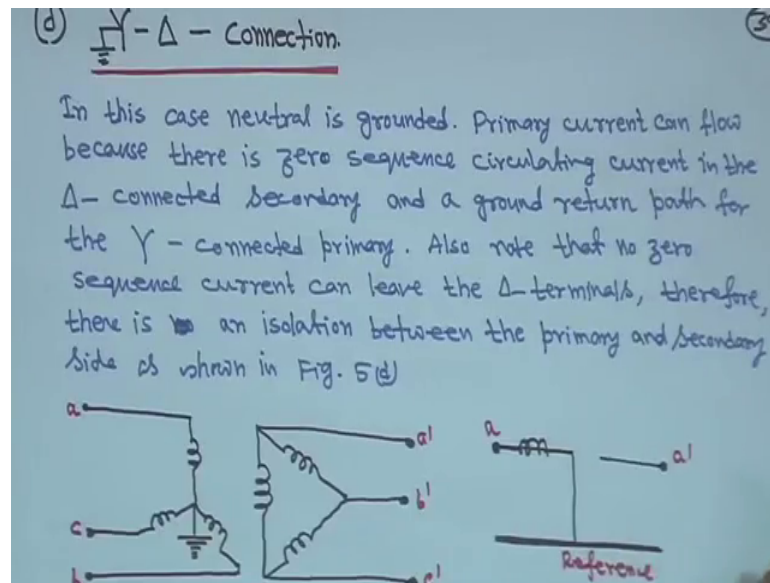 (d) Y - Δ - Connection.
In this case neutral is grounded. Primary current can flow
because there is zero sequence circulating current in the
Δ- connected secondary and a ground return path for
the Y - connected primary. Also note that no zero
sequence current can leave the Δ-terminals, therefore,
there is an isolation between the primary and secondary
side as shown in Fig. 5(d)
a a' a a'
c b'
b c'
Reference